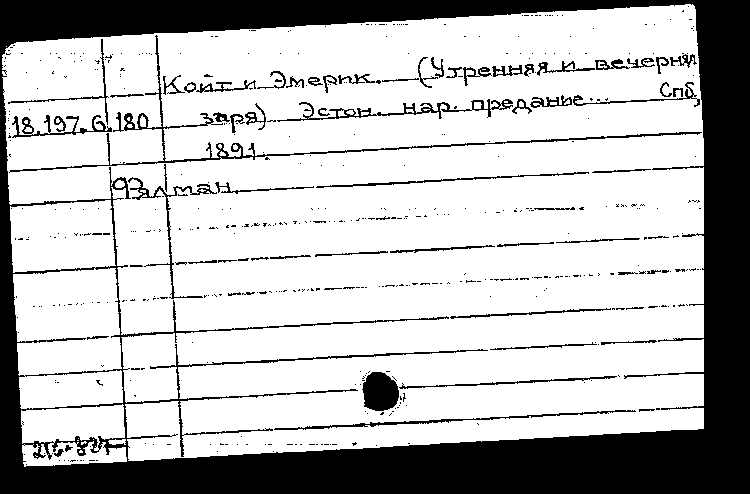 Койт и Эмерик. (Утренняя и вечерняя
18.197.6.180 заря) Эстон. нар. предание... Спб,
1891.
Фялман.